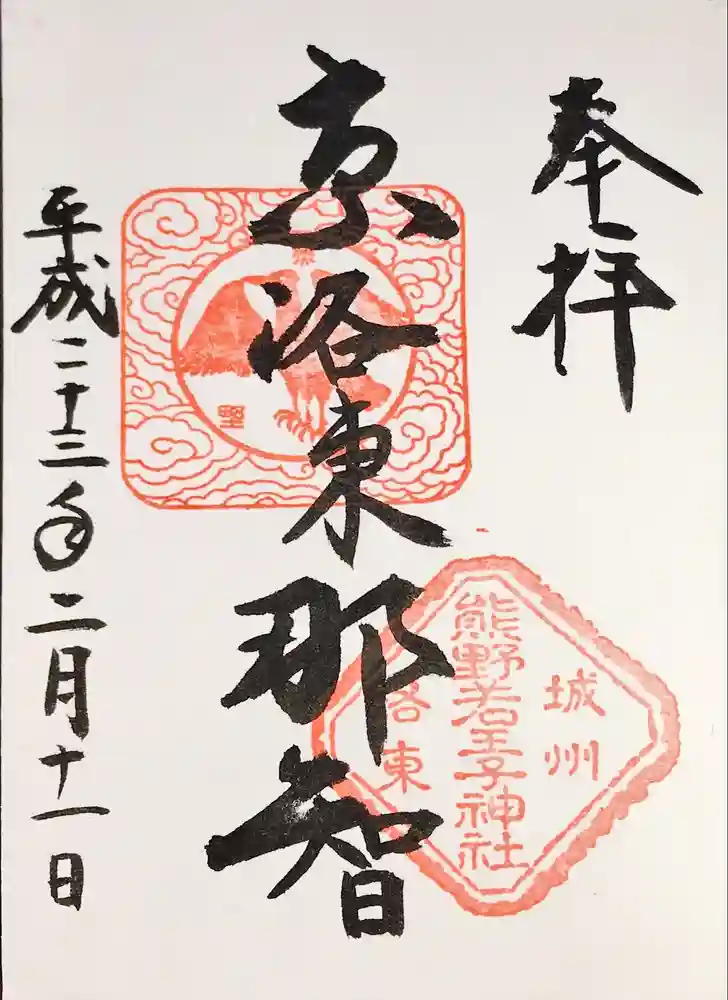 奉拝
城州
熊野若王子神社
洛東
京洛東那智
野
平成二十三年二月十一日